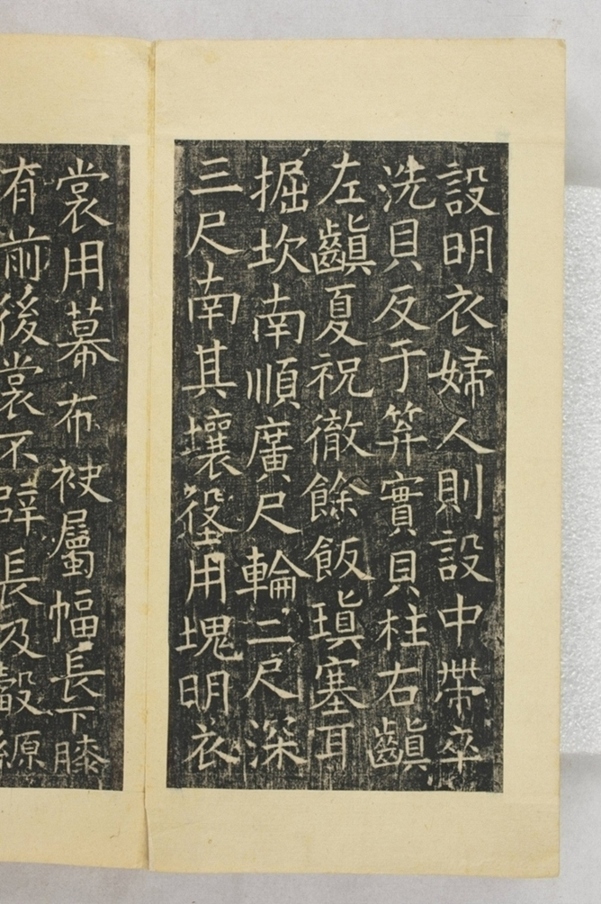 設明衣婦人則設中帶卒
洗貝反于笲實貝柱右齻
左齻夏祝徹餘飯瑱塞耳
掘坎南順廣尺輪二尺深
三尺南其壤垼用塊明衣
裳用幕布袂屬幅長下膝
有前後裳不辟長及觳縓